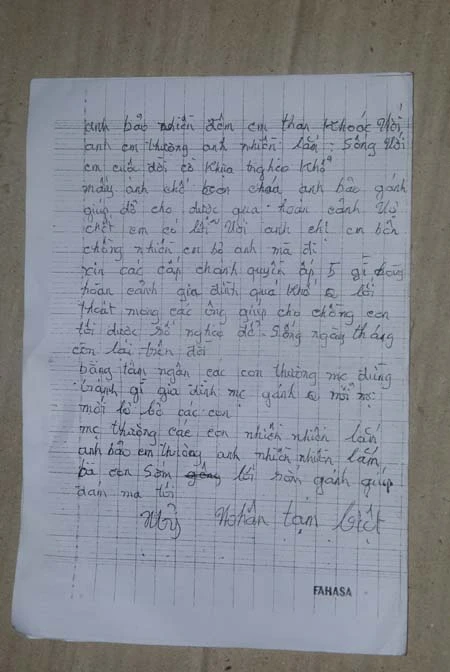 anh bảo nhiền đêm em than khoóc với
anh em thường anh nhiên lắn: sống với
em cuã đời cò khùa nghèo khổ
mấy anh chế bon cháu anh bảo gánh
giúp đỡ cho được qua hoàn cảnh Vợ
chết em có lỗi với anh chi em bên
chồng nhiên em bỏ anh mã đi
xin các cấp chanh quyền ấp 5 gì
hoàn cảnh gia đình quá khổ lối
thoát mong các ông giúp cho chồng con
tôi được sổ nghèo để sống ngày tháng
còn lại trên đời
băng tâm ngân các con thường mẹ đừng
tranh gì gia đình mẹ gánh mỗi nợ
mới lo bỏ các con
mẹ thường các con nhiên nhiên lắn
anh bảo em thường anh nhiên nhiên lắm
bà con sóm lối sóm gánh giúp
đám ma tôi
Mỹ Nhân tạm biệt
FAHASA